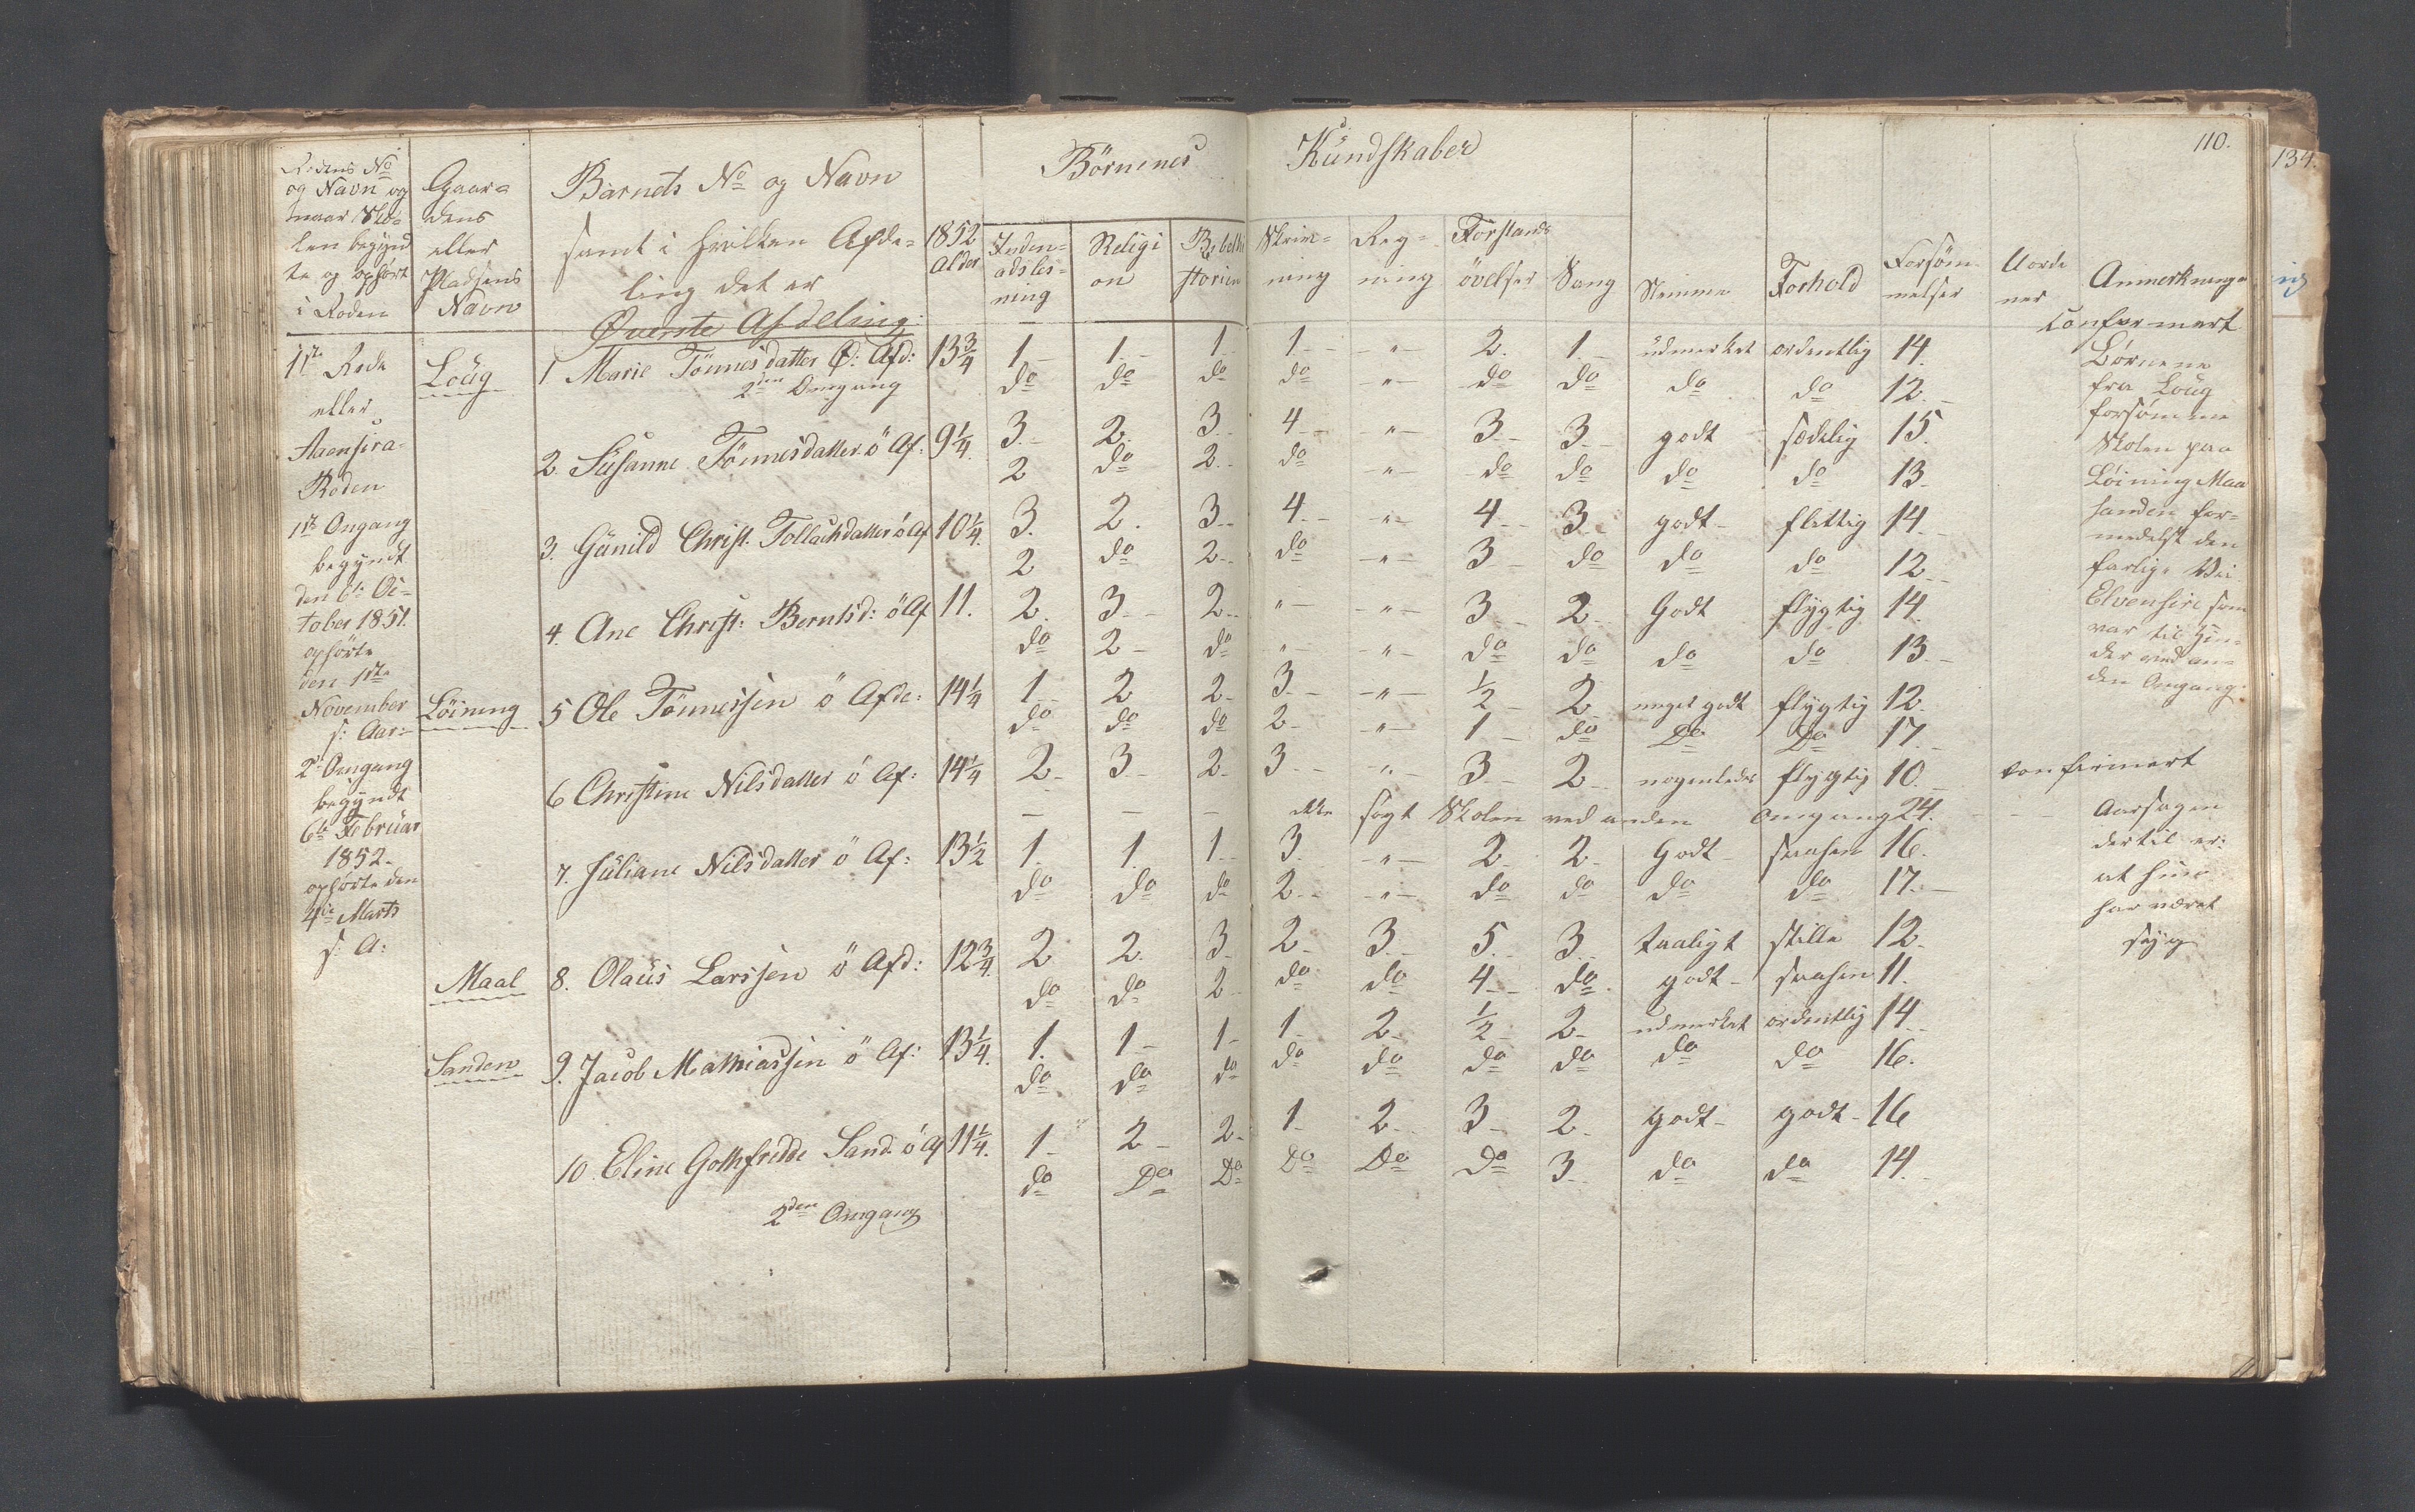 110.
134.
Rodens No og Navn og naar Skolen begyndte og ophørt i Roden
Gaardens eller Pladsens Navn
Barnets No og Navn
samt i hvilken Afdeling det er
1852 Alder
Börnenes Kundskaber
Indenadslesning
Religion
Bibelhistorien
Skrivning
Regning
Forstandsövelser
Sang
Stemme
Forhold
Forsömmelser
Uordener
Anmerkninge
Øverste Afdeling
1ste Rode
eller
Aaensira-
Roden
1ste Omgang
begyndt
den 6te Oc-
tober 1851.
ophørte
den 1ste
November
s: Aar:
2de Omgang
begyndt
6te Februar
1852.
ophørte den
4de Marts
s: A:
Loug 1 Marie Tönnesdatter Ø: Afd: 13 3/4 1 1 1 1 " 2. 1 udmerket ordentlig 14. confermert
2den Omgang do do do do " do do do do 12.
2. Susanne Tönnesdatter ö Af: 9 1/4 3. 2. 3 4 " 3 3 godt sædelig 15.
2 do 2 do " do do do do 13.
3. Gunild Christ. Tollachdatter ö Af 10 1/4 3. 2. 3 4 " 4 3 godt flittig 14.
2 do 2 do " 3 do do do 12.
4. Ane Christ: Berntsd: ö Af 11. 2. 3 2 " " 3 2 Godt flygtig 14.
do 2 do " " do do do do 13.
Löining 5 Ole Tönnessen ö Afde: 14 1/4 1 2 2 3 " 1/2 2 meget godt flygtig 12.
do do do 2 " 1 do Do Do 17.
6 Christine Nilsdatter ö Af: 14 1/4 2 3 2 3 " 3 2 nogenledes flygtig 10. confirmert
— — — ikke søgt Skolen ved anden Omgang 24.
7. Juliane Nilsdatter ö Af: 13 1/2 1. 1. 1 3 " 2 2 Godt 16.
do do do 2 " do do do do 17.
Maal 8. Olaus Larssen ö Afd: 12 3/4 2 2. 3 2 3 5 3 taaligt stille 12.
do do 2 do do 4 do godt 11.
Sanden 9. Jacob Mathiassen ö Af: 13 1/4 1. 1 1 1 2 1/2 2 udmerket ordentlig 14
do do do do do do do do do 16.
10. Eline Gothfredde Sand. ö Af 11 1/4. 1 2 2 1 2 3 2 godt godt 16
2den Omgang do Do Do Do Do Do 3 do do 14.
Börnene
fra Loug
forsömme
Skolen paa
Löining Maa
Sanden for-
medelst den
farlige Vei
Elvensire som
var til Hin-
der ved an-
den Omgang.
Aarsagen
dertil er:
at hun
har været
syg